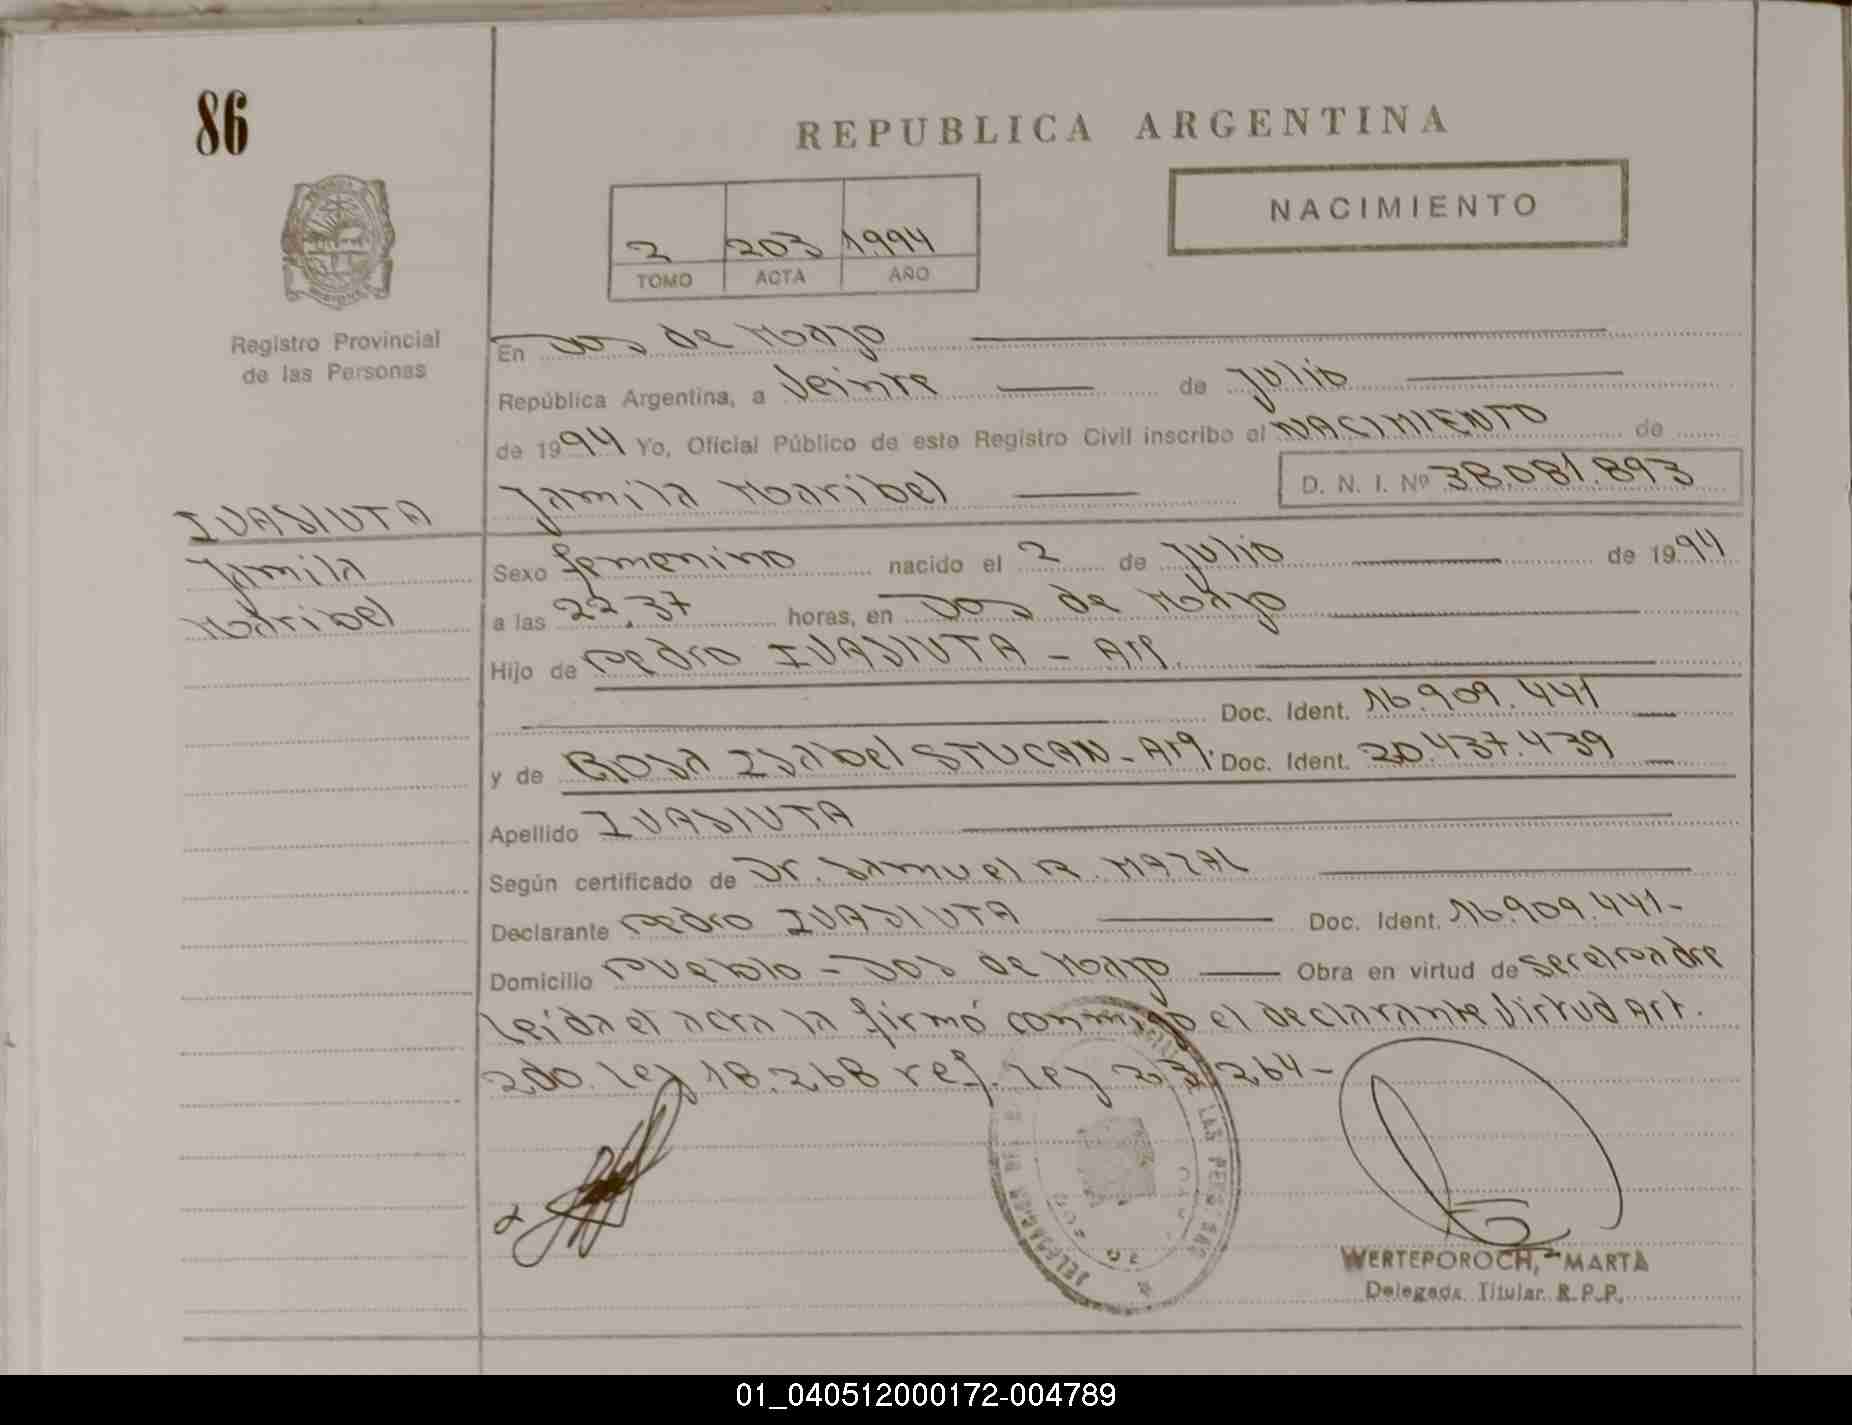 86
REPUBLICA ARGENTINA
NACIMIENTO
2 203 1994
TOMO ACTA AÑO
Registro Provincial
de las Personas
En Dos de Mayo
República Argentina, a Veinte de Julio
de 1994 Yo, Oficial Público de este Registro Civil inscribo el NACIMIENTO de
Jamila Maribel D. N. I. Nº 38.081.893
IVASIUTA
Jamila
Maribel
Sexo femenino nacido el 2 de Julio de 1994
a las 22.37 horas, en Dos de Mayo
Hijo de Pedro IVASIUTA - Arg.
Doc. Ident. 16.909.441
y de Rosa Isabel STUCAN - Arg. Doc. Ident. 20.437.439
Apellido IVASIUTA
Según certificado de Dr. Samuel R. MAZAL
Declarante Pedro IVASIUTA Doc. Ident. 16.909.441-
Domicilio Pueblo - Dos de Mayo Obra en virtud de ser el padre
Leida el acta la firmó conmigo el declarante Virtud Art.
2do. Ley 18.268 ref. Ley 23.264-
DELEGACION DE LAS PERSONAS
WERTEPOROCH, MARTA
Delegada Titular R.P.P.
01_040512000172-004789